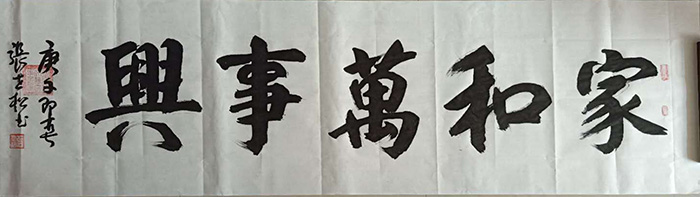 家和萬事興
庚子初春
張士松书